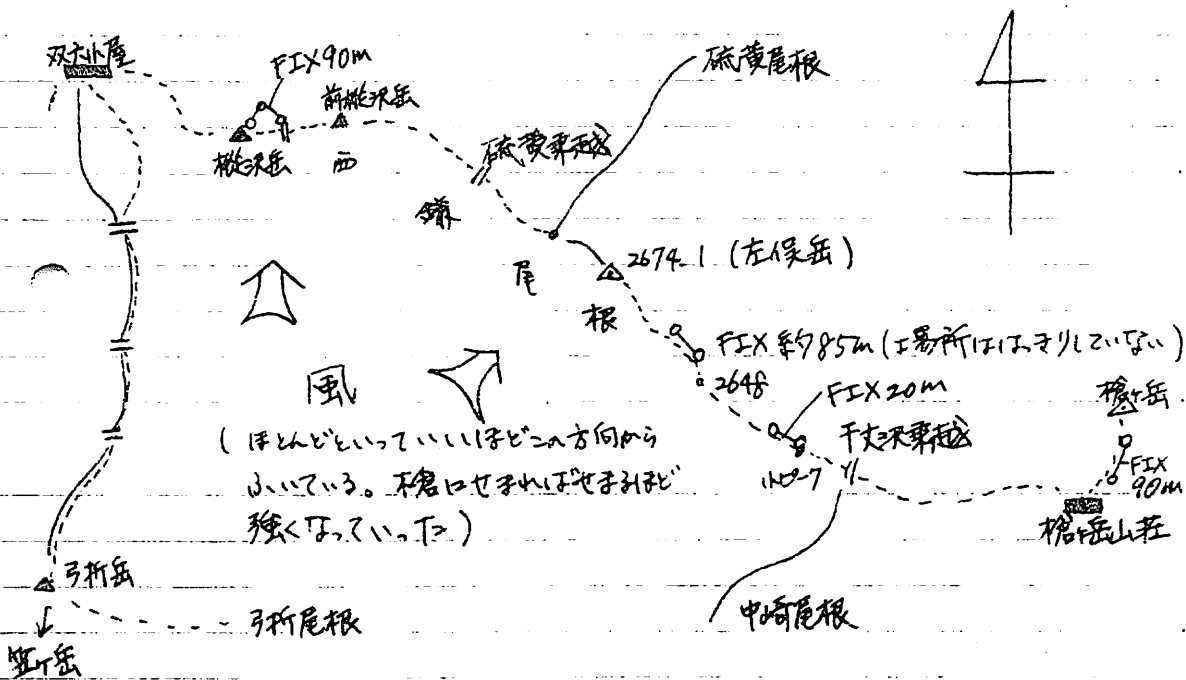 双六小屋
FIX90m
前樅沢岳
樅沢岳
西
鎌
尾
根
硫黄乗越
硫黄尾根
2674.1 (左俣岳)
FIX 約85m (場所ははっきりしていない)
2648
FIX20m
小ピーク
千丈沢乗越
槍ヶ岳
FIX
90m
槍ヶ岳山荘
中崎尾根
風
(ほとんどといっていいほどこの方向から
ふいている。槍にせまればせまるほど
強くなっていった)
弓折岳
弓折尾根
笠ヶ岳